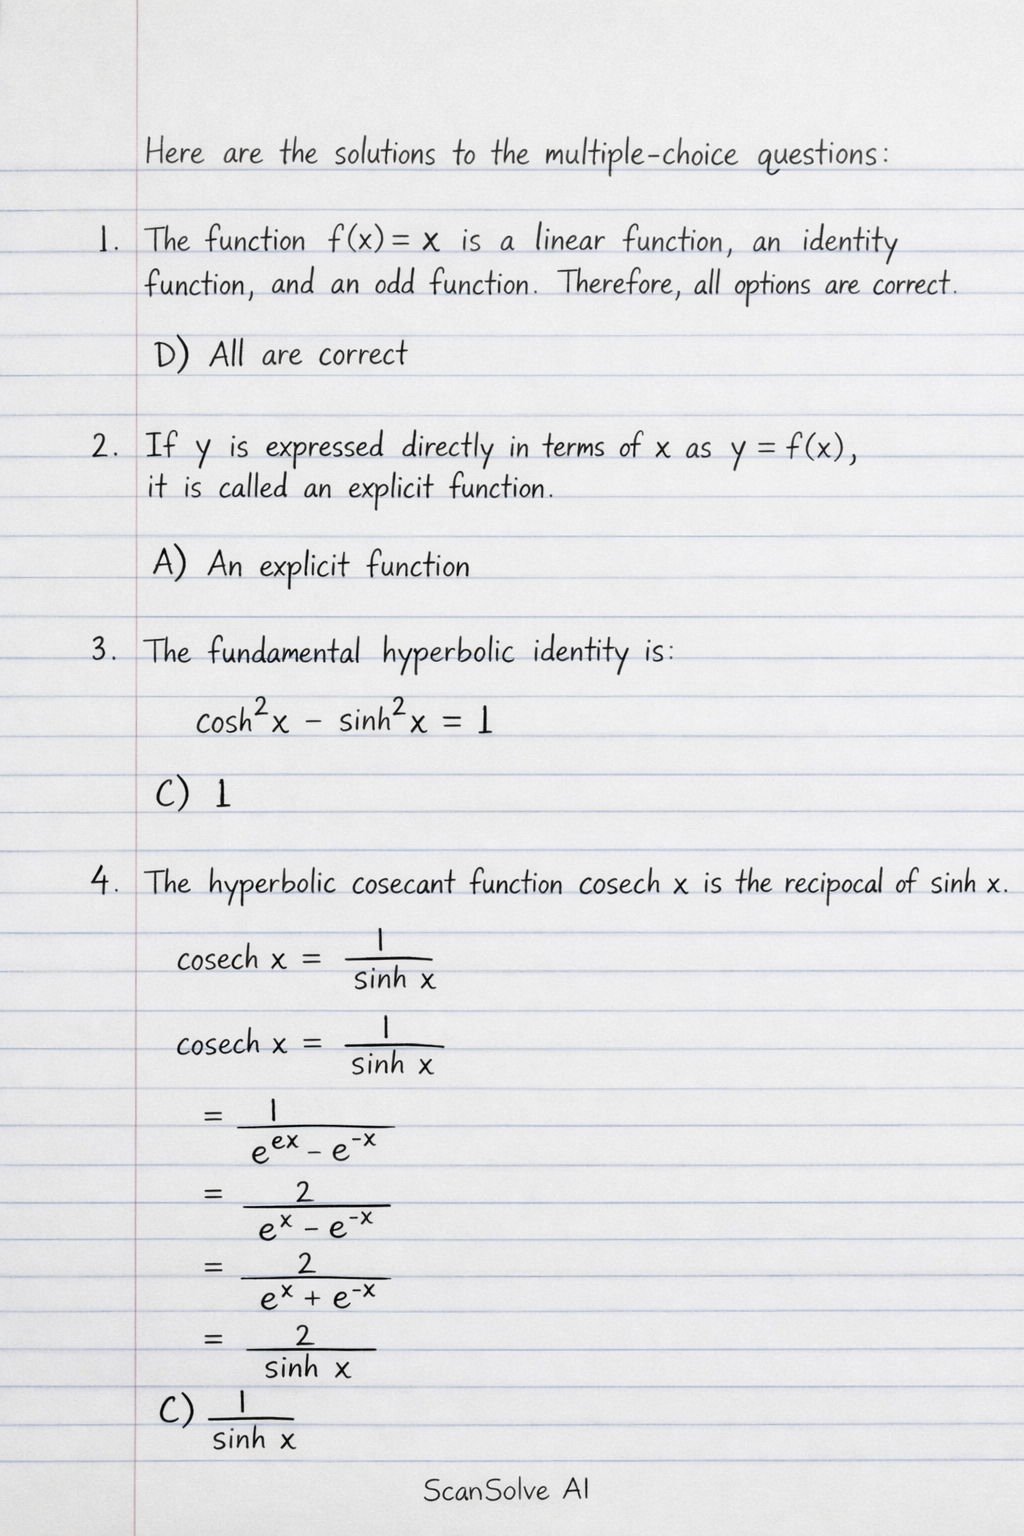 Here are the solutions to the multiple-choice questions:
1. The function f(x) = x is a linear function, an identity
function, and an odd function. Therefore, all options are correct.
D) All are correct
2. If y is expressed directly in terms of x as y = f(x),
it is called an explicit function.
A) An explicit function
3. The fundamental hyperbolic identity is:
cosh²x − sinh²x = 1
C) 1
4. The hyperbolic cosecant function cosech x is the recipocal of sinh x.
cosech x = 1 / sinh x
cosech x = 1 / sinh x
= 1 / e^(ex) − e^(-x)
= 2 / e^x − e^(-x)
= 2 / e^x + e^(-x)
= 2 / sinh x
C) 1 / sinh x
ScanSolve AI